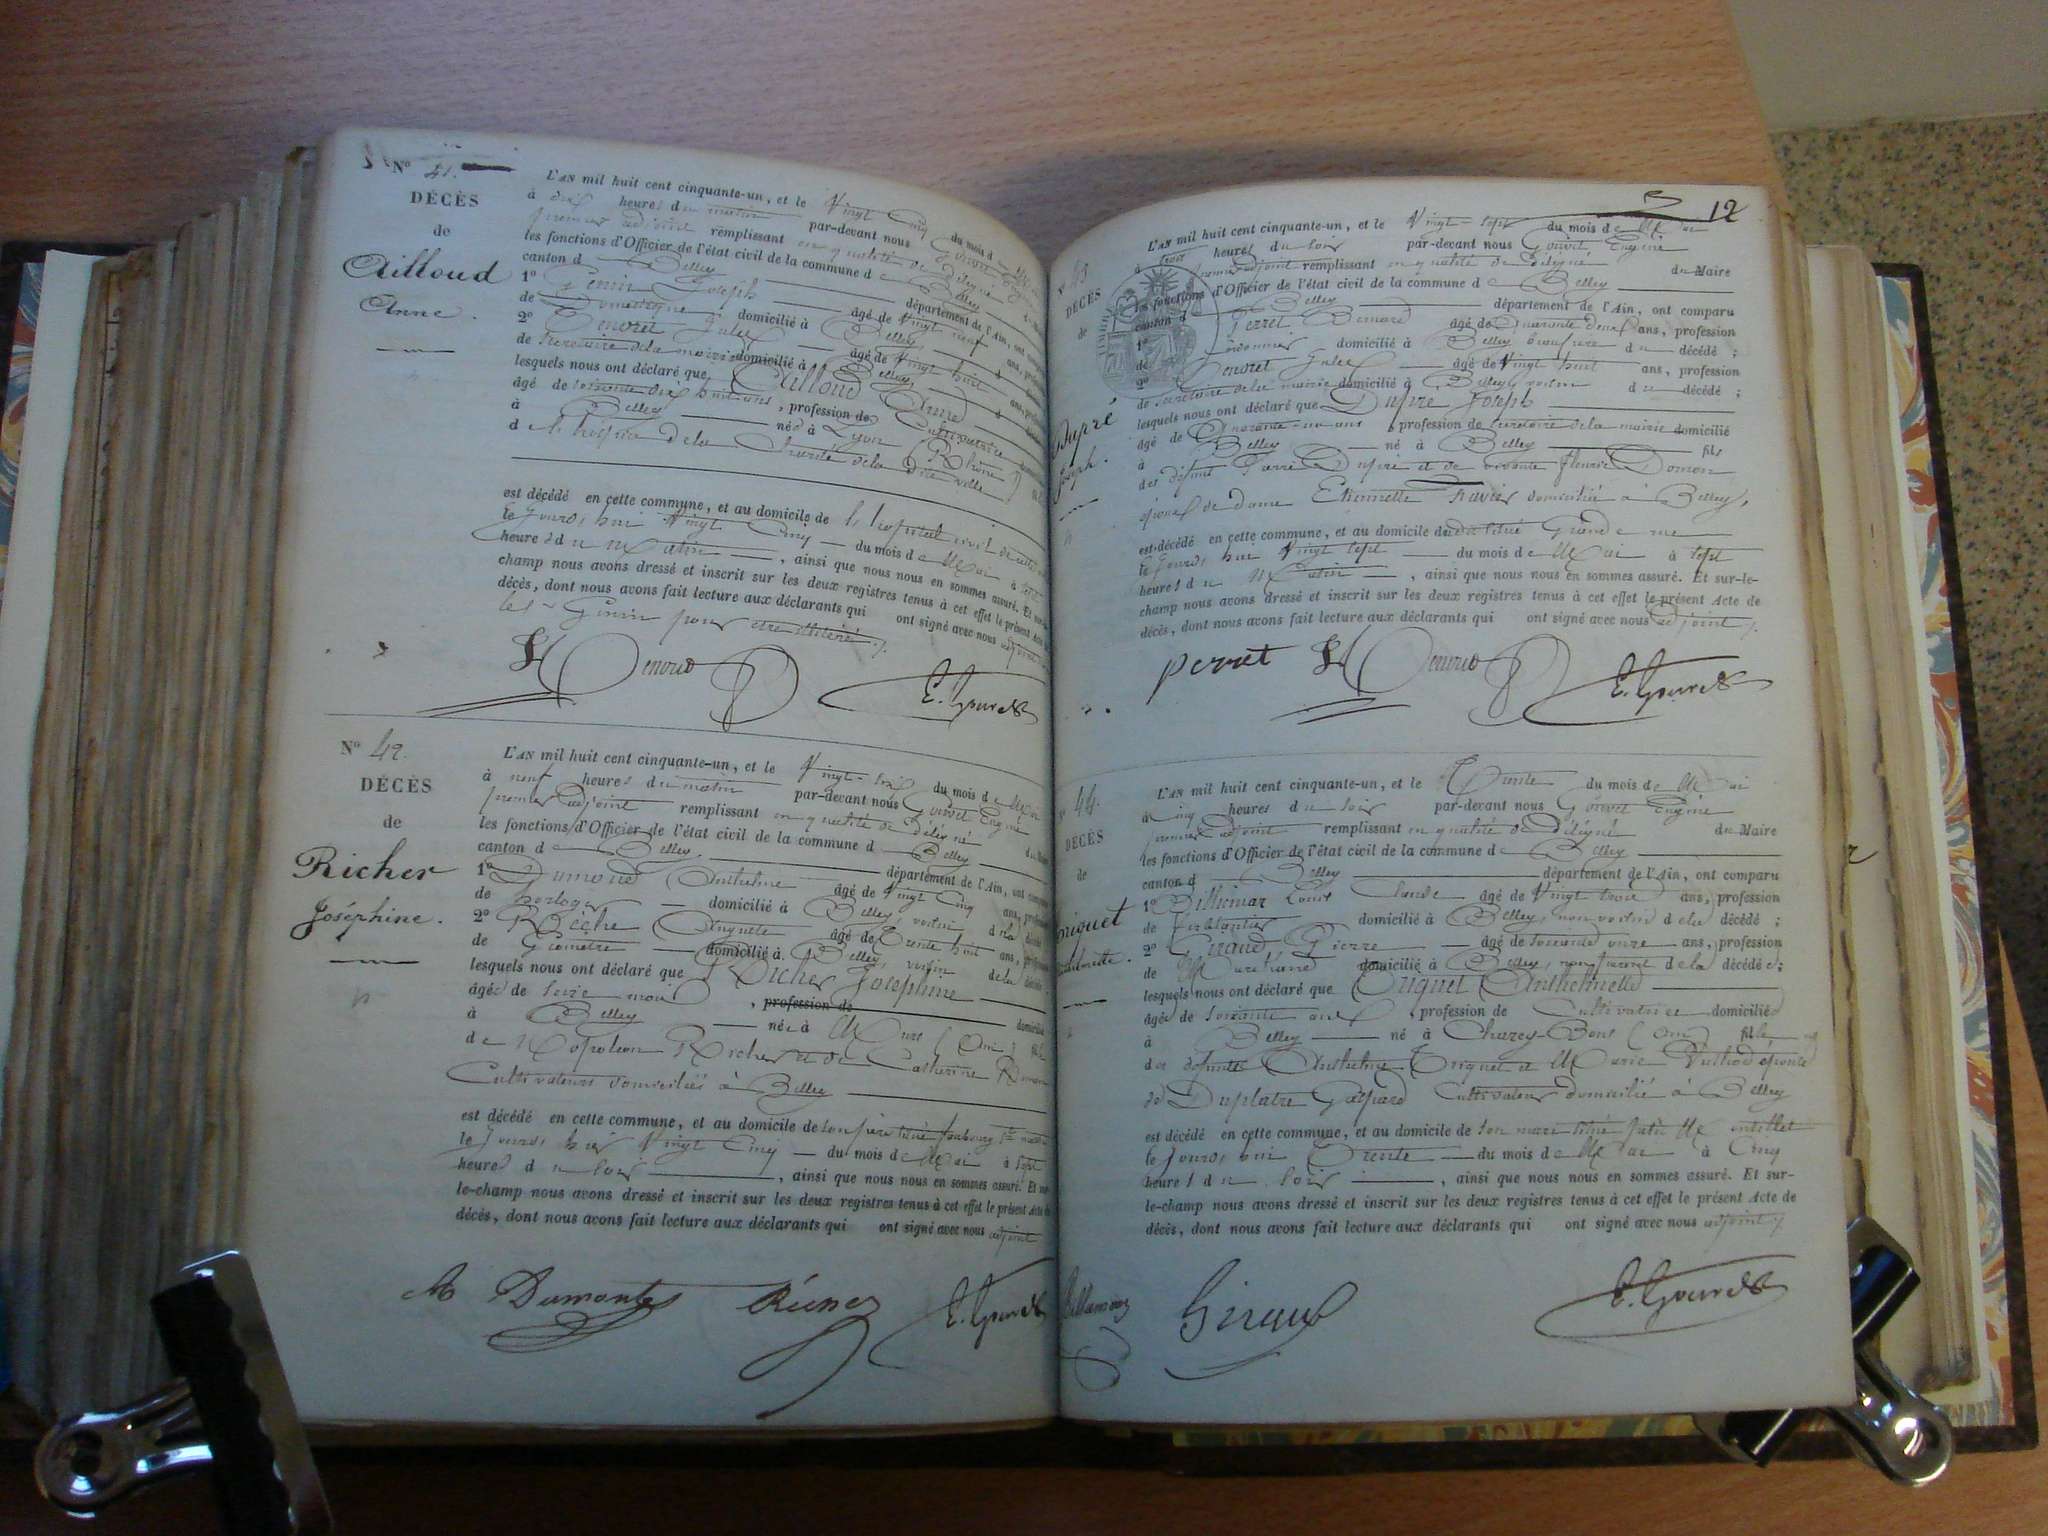 N° 41.
DÉCÈS
de
Ailloud
Anne.
L'AN mil huit cent cinquante-un, et le Vingt Cinq du mois d
à dix heures du matin par-devant nous
premier adjoint remplissant en qualité de Délégué
les fonctions d'Officier de l'état civil de la commune de Belley
canton de Belley département de l'Ain, ont
1° Joseph âgé de Vingt neuf ans,
de Domestique domicilié à Belley
2° Jules âgé de Vingt huit
de Secrétaire de la mairie domicilié à Belley
lesquels nous ont déclaré que Ailloud Anne
âgé de soixante dix huit ans, profession de Cultivatrice
à Belley née à Lyon Rhône
de la Charité de la dite ville
est décédé en cette commune, et au domicile de l'hopital civil de cette
le jourd'hui Vingt Cinq du mois de Mai à
heures du Matin, ainsi que nous nous en sommes assuré. Et
champ nous avons dressé et inscrit sur les deux registres tenus à cet effet le présent Acte
décès, dont nous avons fait lecture aux déclarants qui ont signé avec nous adjoint
pour être illitéré
E. Gouvet
N° 42.
DÉCÈS
de
Richer
Joséphine.
L'AN mil huit cent cinquante-un, et le Vingt-six du mois de Mai
à neuf heures du matin par-devant nous Gouvet Eugène
premier adjoint remplissant en qualité de Délégué du Maire
les fonctions d'Officier de l'état civil de la commune de Belley
canton de Belley département de l'Ain, ont comparu
1° Dumond Anthelme âgé de Vingt Cinq ans, profession
de horloger domicilié à Belley, voisin de la décédée
2° Riche âgé de Trente huit ans, profession
de Géomètre domicilié à Belley, voisin de la
lesquels nous ont déclaré que Richer Joséphine
âgée de seize mois, profession de domicilié
à Belley née à (Ain) fille
de Napoléon Richer et de Catherine
Cultivateurs domiciliés à Belley
est décédé en cette commune, et au domicile de son père situé faubourg
le jourd'hier Vingt Cinq du mois de Mai à sept
heures du soir, ainsi que nous nous en sommes assuré. Et sur
le-champ nous avons dressé et inscrit sur les deux registres tenus à cet effet le présent Acte de
décès, dont nous avons fait lecture aux déclarants qui ont signé avec nous adjoint
A Dumont E. Gouvet
12
N° 43
DÉCÈS
de
Dupré
Joseph.
L'AN mil huit cent cinquante-un, et le Vingt-sept du mois de Mai
à trois heures du soir par-devant nous Gouvet Eugène
premier adjoint remplissant en qualité de Délégué du Maire
les fonctions d'Officier de l'état civil de la commune de Belley
canton de Belley département de l'Ain, ont comparu
1° Perret Bernard âgé de Quarante deux ans, profession
de Cordonnier domicilié à Belley beau frère du décédé ;
2° Jules âgé de Vingt huit ans, profession
de Secrétaire de la mairie domicilié à Belley, voisin du décédé ;
lesquels nous ont déclaré que Dupré Joseph
âgé de Quarante-un ans, profession de secrétaire de la mairie domicilié
à Belley né à Belley fils
des défunt Pierre Dupré et de vivante Domon
époux de dame Etiennette domiciliée à Belley,
est décédé en cette commune, et au domicile du décédé situé Grande rue
le jourd'hui Vingt sept du mois de Mai à sept
heures du Matin, ainsi que nous nous en sommes assuré. Et sur-le-
champ nous avons dressé et inscrit sur les deux registres tenus à cet effet le présent Acte de
décès, dont nous avons fait lecture aux déclarants qui ont signé avec nous adjoint
perret E. Gouvet
N° 44.
DÉCÈS
de
L'AN mil huit cent cinquante-un, et le Trente du mois de Mai
à Cinq heures du soir par-devant nous Gouvet Eugène
premier adjoint remplissant en qualité de Délégué du Maire
les fonctions d'Officier de l'état civil de la commune de Belley
canton de Belley département de l'Ain, ont comparu
1° Louis Claude âgé de Vingt trois ans, profession
de ferblantier domicilié à Belley, non voisin de la décédé ;
2° Giraud Pierre âgé de soixante onze ans, profession
de domicilié à Belley, non parent de la décédée ;
lesquels nous ont déclaré que
âgée de soixante ans, profession de Cultivatrice domiciliée
à Belley né à Chazey-Bons (Ain) fille
des défunts Anthelme et Marie épouse
de Duplatre Gaspard Cultivateur domicilié à Belley
est décédé en cette commune, et au domicile de son mari situé
le jourd'hui Trente du mois de Mai à Cinq
heures du soir, ainsi que nous nous en sommes assuré. Et sur-
le-champ nous avons dressé et inscrit sur les deux registres tenus à cet effet le présent Acte de
décès, dont nous avons fait lecture aux déclarants qui ont signé avec nous adjoint
Giraud E. Gouvet